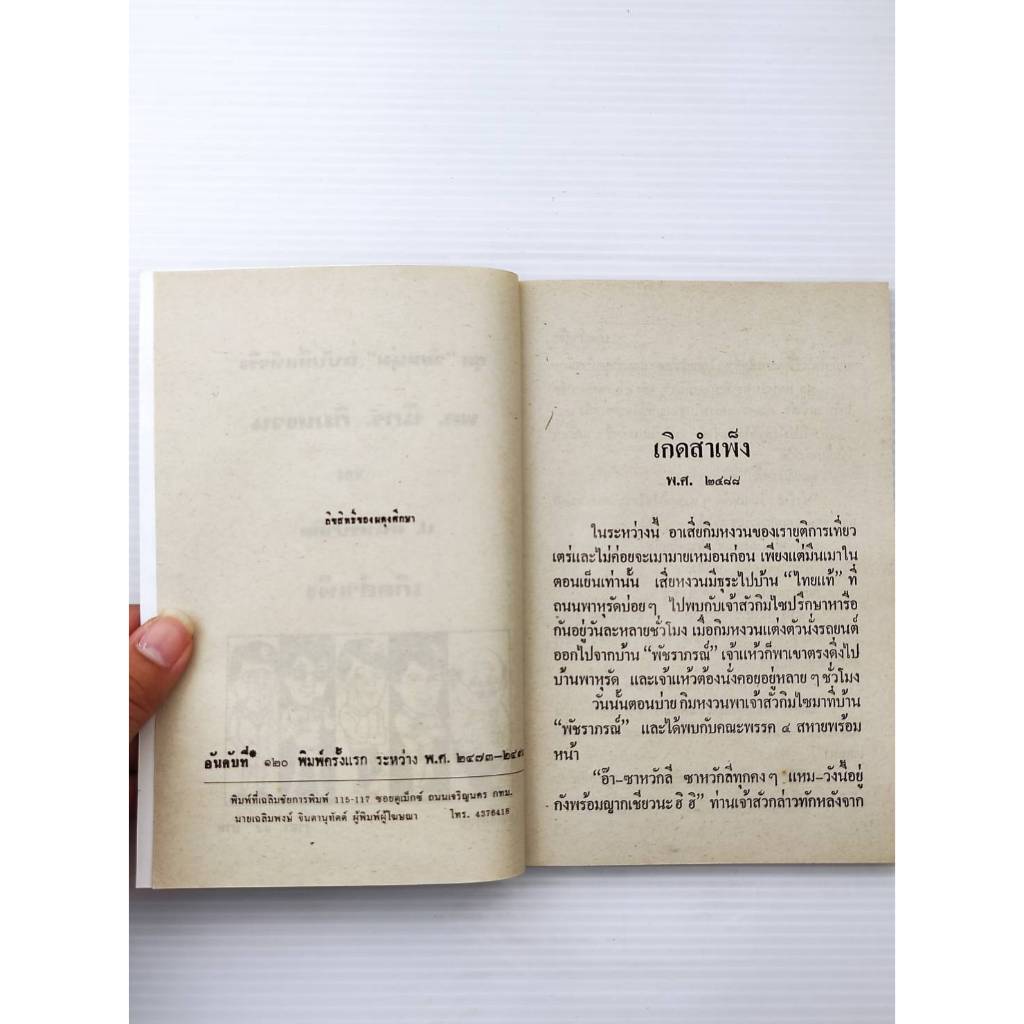 ลิขสิทธิ์ของผดุงศึกษา
อันดับที่ ๑๒๐ พิมพ์ครั้งแรก ระหว่าง พ.ศ. ๒๔๗๓—๒๔๙
พิมพ์ที่เฉลิมชัยการพิมพ์ 115-117 ซอยคูเม็กซ์ ถนนเจริญนคร กทม.
นายเฉลิมพงษ์ จินดานุทัศต์ ผู้พิมพ์ผู้โฆษณา โทร. 4376418
เกิดสำเพ็ง
พ.ศ. ๒๔๘๘
ในระหว่างนี้ อาเสี่ยกิมหงวนของเรายุติการเที่ยว
เตร่และไม่ค่อยจะเมามายเหมือนก่อน เพียงแต่มึนเมาใน
ตอนเย็นเท่านั้น เสี่ยหงวนมีธุระไปบ้าน “ไทยแท้” ที่
ถนนพาหุรัดบ่อยๆ ไปพบกับเจ้าสัวกิมไซปรึกษาหารือ
กันอยู่วันละหลายชั่วโมง เมื่อกิมหงวนแต่งตัวนั่งรถยนต์
ออกไปจากบ้าน “พัชราภรณ์” เจ้าแห้วก็พาเขาตรงดิ่งไป
บ้านพาหุรัด และเจ้าแห้วต้องนั่งคอยอยู่หลายๆ ชั่วโมง
วันนั้นตอนบ่าย กิมหงวนพาเจ้าสัวกิมไซมาที่บ้าน
“พัชราภรณ์” และได้พบกับคณะพรรค ๔ สหายพร้อม
หน้า
“อ๊า-ซาหวักลี ซาหวักลีทุกคงๆ แหม-วังนี้อยู่
กังพร้อมญากเชียวนะ ฮิ ฮิ” ท่านเจ้าสัวกล่าวทักหลังจาก